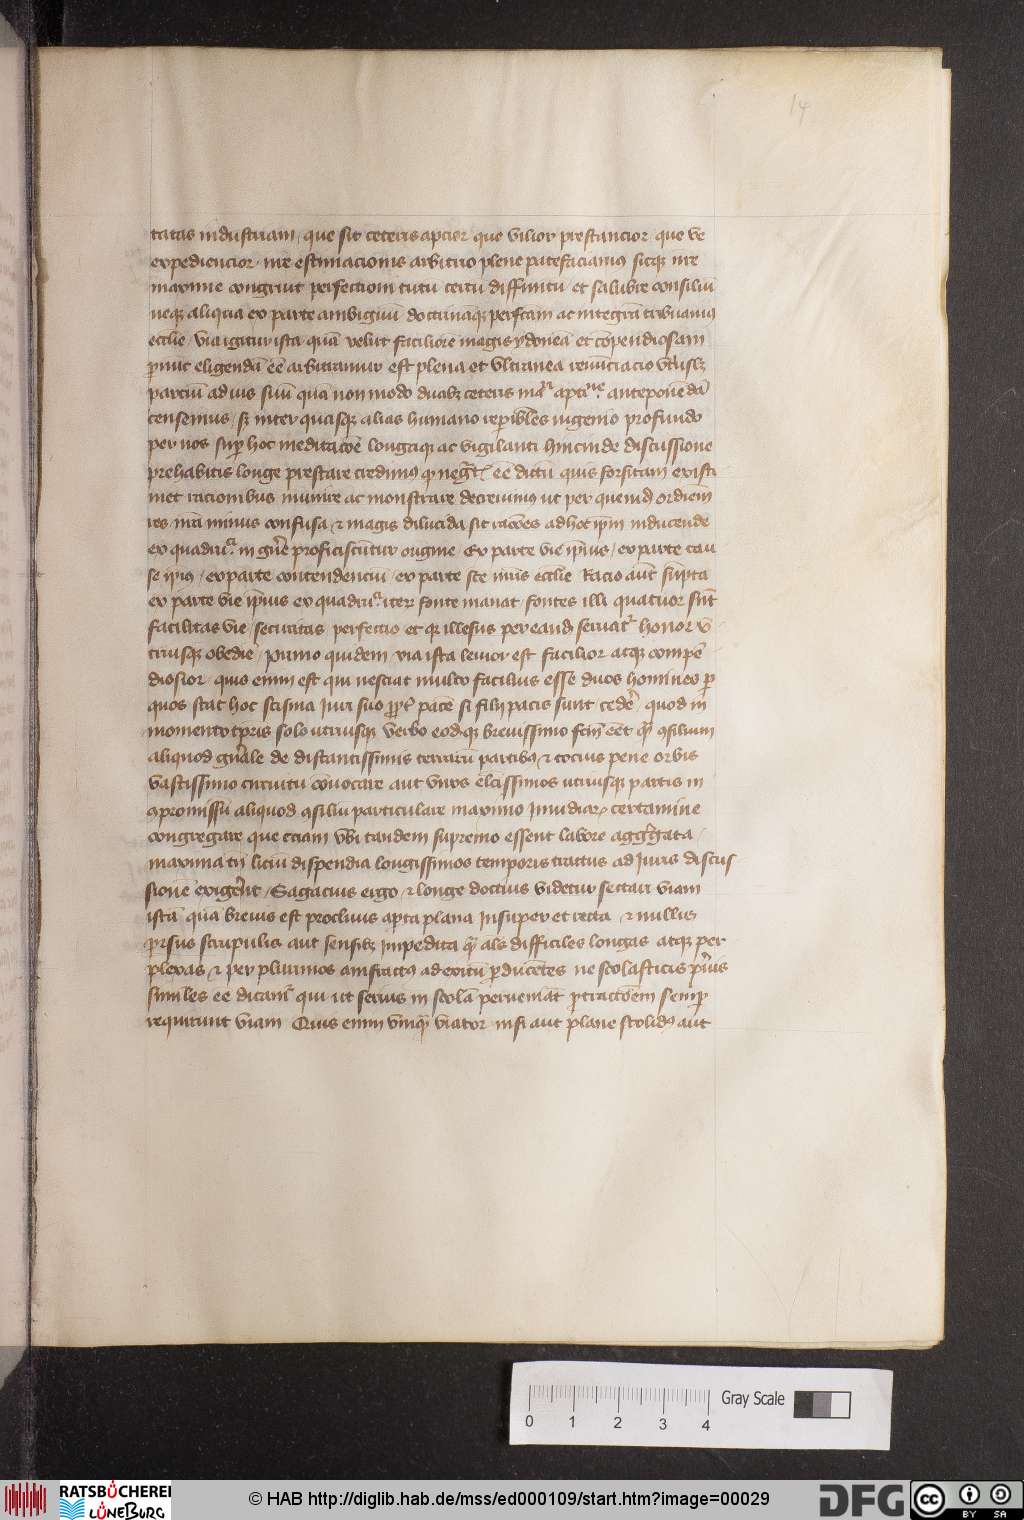 14
tatas industriam / que sit ceteris apcior que vilior prestancior que ve
expediencior in estimacionis arbitrio plene patefaciamus sicq; 
maxime congruit perfectioni tutū certū diffinitū et salubre consiliū
neq; aliqua ex parte ambiguū doctrināq; perfcam ac integrā tribuamus
ecclie / via igitur ista quā velut faciliorē magis ydoneā et cōpendiosam
eligendā eē arbitramur est plena et vltranea renūciacio
parciū ad ius suū quā non modo duab; ceteris anteponēdā
censemus / s; inter quasq; alias humano ingenio profundo
per nos sup hoc meditacōe longaq; ac vigilanti hincinde discussione
prehabitis longe prestare credimus eē dictū quis forsitam existi
met racionibus munire ac monstrare decreuimus ut per quend ordinem
res nrā minus confusa / et magis dilucida sit racōes ad hoc ipm inducende
ex quadru in gnē proficiscūtur origine Ex parte vie ipius / ex parte cau
se ipius / ex parte contendenciū / ex parte sce nris ecclie Racio aūt sūpta
ex parte vie ipius ex quadru iter fonte manat fontes illi quatuor sūt
facilitas vie / securitas perfectio et qr illesus per eand seruat honor v
triusq; obedie / Primo quidem via ista leuior est facilior atq; compē
diosior quis enim est qui nesciat multo facilius esse duos homines p
quos stat hoc scisma Juri suo ppt pacē si filij pacis sunt cedē quod in
momento tpris solo utriusq; verbo eodēq; breuissimo fcm eēt q consilium
aliquod gnāle de distantissimis terrarū partibus et tocius pene orbis
vastissimo circuitu cōuocare aut viros elcissimos utriusq; partis in
cōpromissū aliquod consiliū particulare maximo certamine
congregare que eciam vbi tandem supremo essent labore aggregata /
maxima tn liciū dispendia longissimos temporis tractus ad Juris discus
sionē exigent / Sagacius ergo / et longe doctius videtur sectari viam
istā quā breuis est procliuis apta plana Insuper et recta et nullis
prsus scrupulis aut sensib; impedita q als difficiles longas atq; per
plexas / et per plurimos amfractus ad exitū pducētes ne scolasticis
similes eē dicam qui ut serius in scolā perueniāt ptractōem semp
requirunt viam Quis enim vmq viator nisi aut plane stolidus aut
0 1 2 3 4
Gray Scale
RATSBÜCHEREI
LÜNEBURG
© HAB http://diglib.hab.de/mss/ed000109/start.htm?image=00029
DFG
cc
BY SA